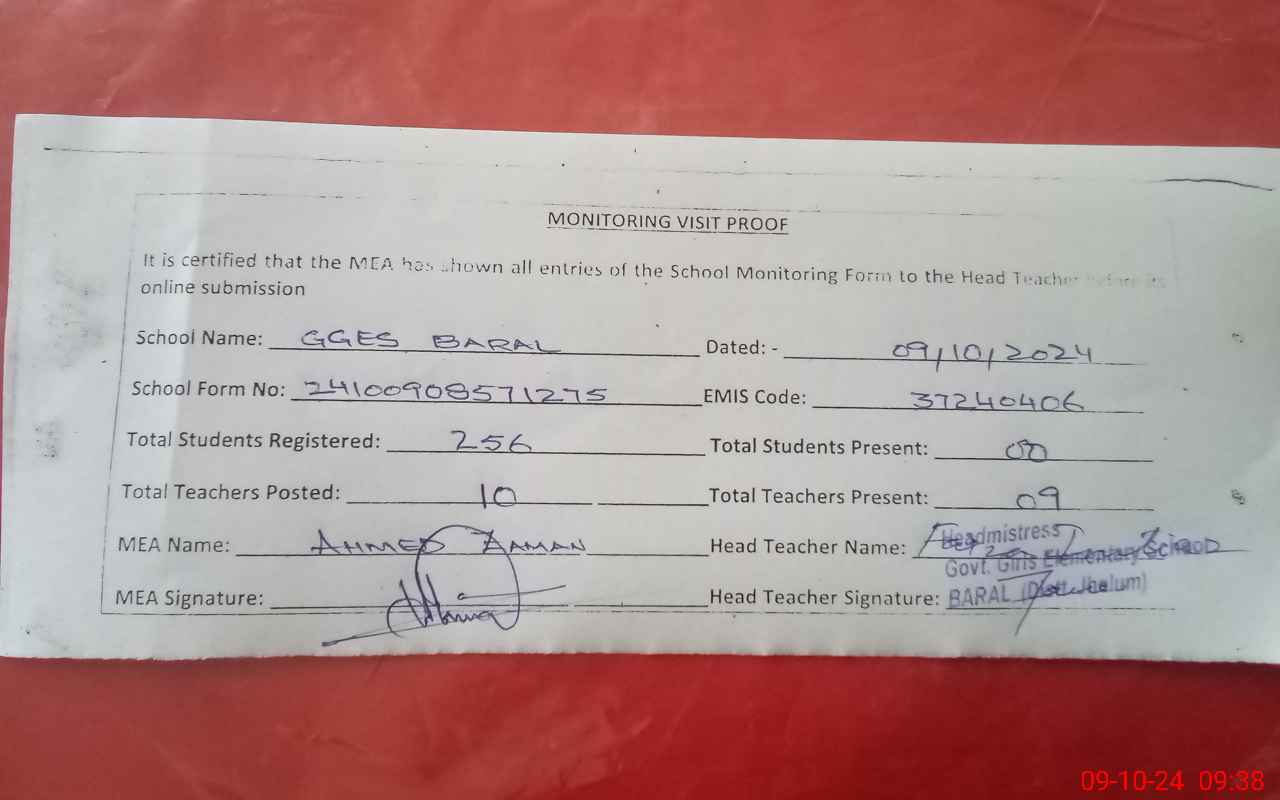 MONITORING VISIT PROOF
It is certified that the MEA has shown all entries of the School Monitoring Form to the Head Teacher before its
online submission
School Name: GGES BARAL Dated: - 09/10/2024
School Form No: 24100908571275 EMIS Code: 37240406
Total Students Registered: 256 Total Students Present: 00
Total Teachers Posted: 10 Total Teachers Present: 09
MEA Name: AHMED ZAMAN Head Teacher Name:
Headmistress
Govt. Girls Elementary School
MEA Signature: Head Teacher Signature: BARAL (Distt. Jhelum)
09-10-24 09:38